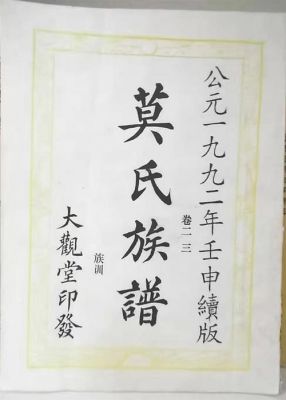 公元一九九二年壬申續版
卷二三
莫氏族譜
族训
大觀堂印發